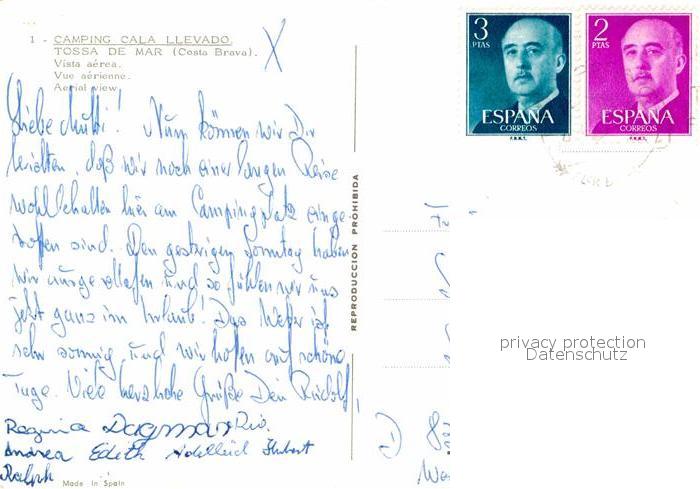 1 - CAMPING CALA LLEVADO.
TOSSA DE MAR (Costa Brava).
Vista aérea.
Vue aérienne.
Aerial view.
X
Liebe Mutti! Nun können wir Dir
berichten, daß wir nach einer langen Reise
wohlbehalten hier am Campingplatz einge-
troffen sind. Den gestrigen Sonntag haben
wir ausgeschlafen und so fühlen wir uns
jetzt ganz im Urlaub! Das Wetter ist
sehr sonnig und wir hoffen auf schöne
Tage. Viele herzliche Grüße Dein Rudolf!
Regina Dagmar
Andrea Edith Adelheid Hubert
Ralph
Made in Spain
REPRODUCCION PROHIBIDA
3 PTAS
ESPAÑA
CORREOS
F.N.M.T.
2 PTAS
ESPAÑA
CORREOS
F.N.M.T.
privacy protection
Datenschutz